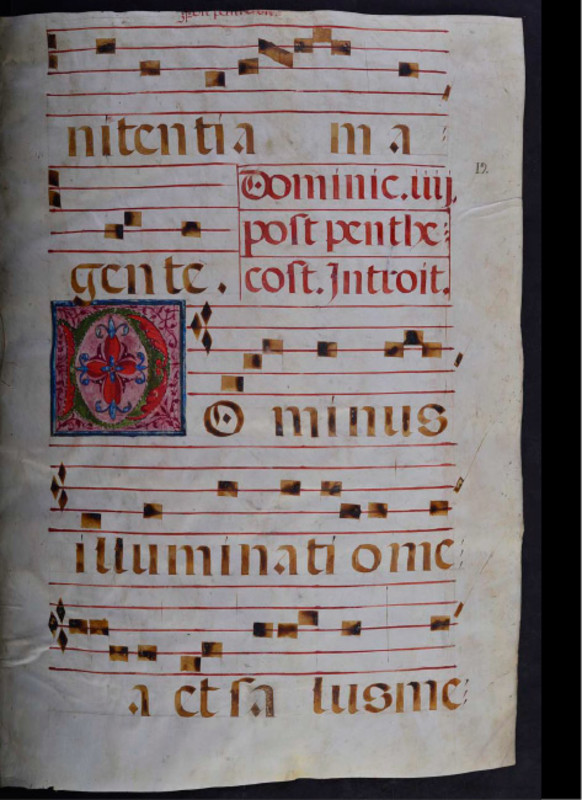 nitentia ma
12
Dominic.iiij.
post penthe
gente. cost. Introit.
Dominus
illuminatiome
aetsa lusme